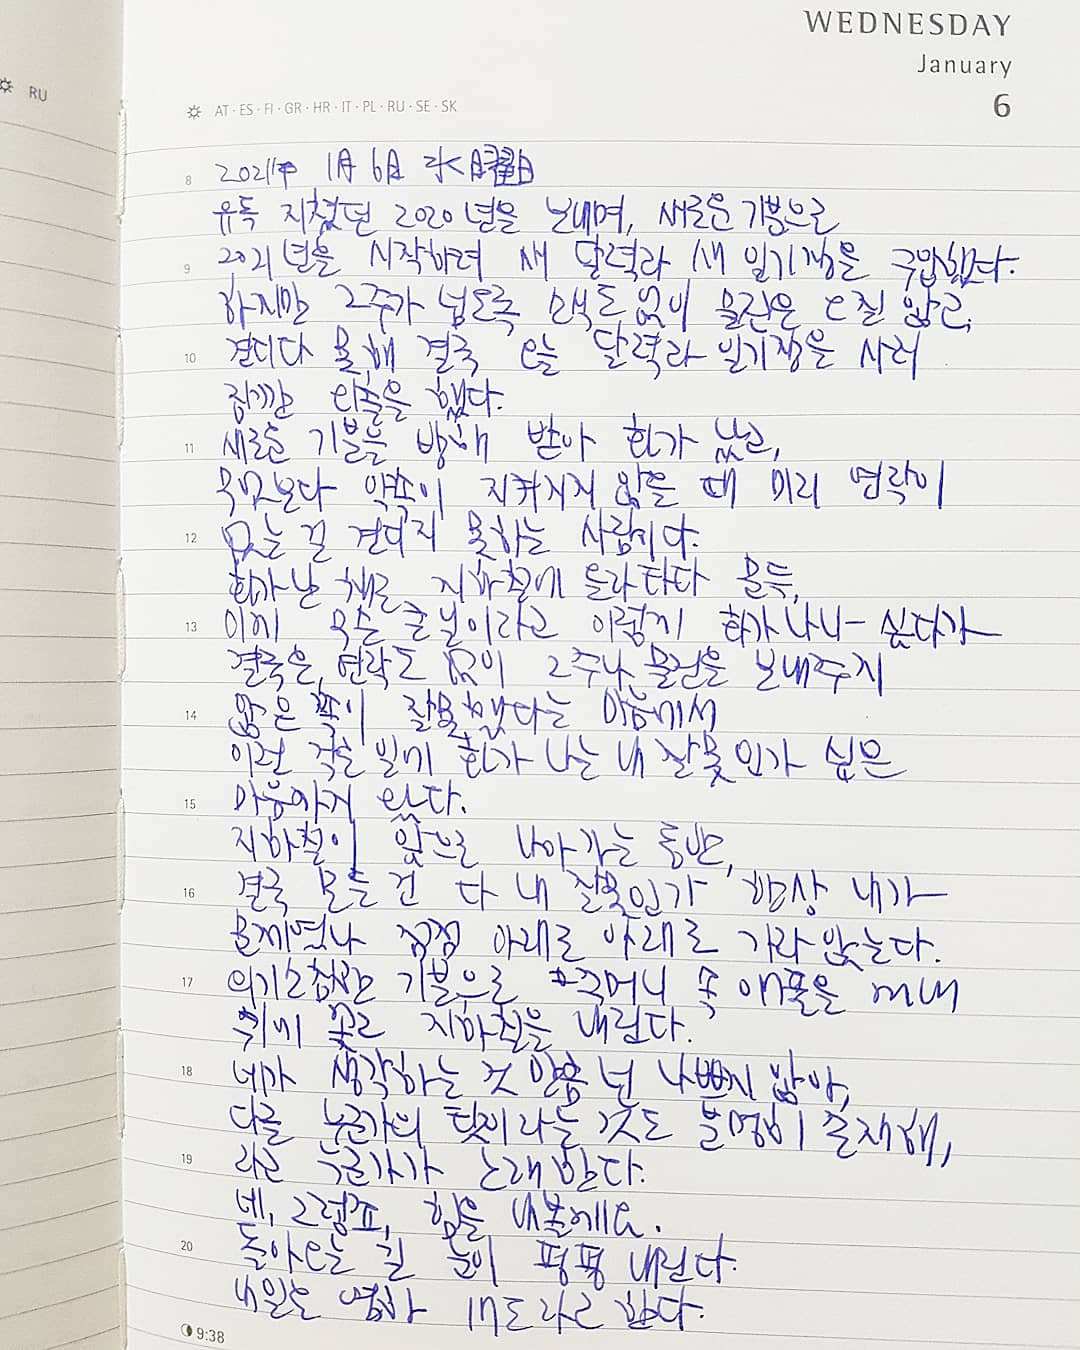 WEDNESDAY
January
6
RU
AT · ES · FI · GR · HR · IT · PL · RU · SE · SK
8 2021年 1月 6日 水曜日
유독 지쳤던 2020년을 보내며, 새로운 기분으로
9 2021년을 시작하려 새 달력과 새 일기장을 구입했다.
하지만 2주가 넘도록 소식도 없이 물건은 오질 않고,
10 견디다 못해 결국 오늘 달력과 일기장을 사러
잠깐 외출을 했다.
11 새로운 기분을 방해 받아 화가 났고,
무엇보다 약속이 지켜지지 않을 때 미리 연락이
12 없는 걸 견디지 못하는 사람이다.
화가 난 채로 지하철에 올라타다 문득,
13 이게 무슨 큰 일이라고 이렇게 화가 나나- 싶다가
결국은, 연락도 없이 2주나 물건을 보내주지
14 않은 쪽이 잘못했다는 마음에서
이런 작은 일에 화가 나는 내 잘못인가 싶은
15 마음까지 왔다.
지하철이 앞으로 나아가는 동안,
16 결국 모든 건 다 내 잘못인가 항상 내가
문제였나 점점 아래로 아래로 가라앉는다.
17 의기소침한 기분으로 주머니 속 에어폰을 꺼내
귀에 꽂고 지하철을 내린다.
18 네가 생각하는 것 만큼 넌 나쁘지 않아,
다른 누군가의 탓이라는 것도 분명히 존재해,
19 라고 누군가가 노래한다.
네, 그렇죠, 힘을 내볼게요.
20 돌아오는 길 눈이 펑펑 내린다.
내일은 영하 17도라고 한다.
9:38